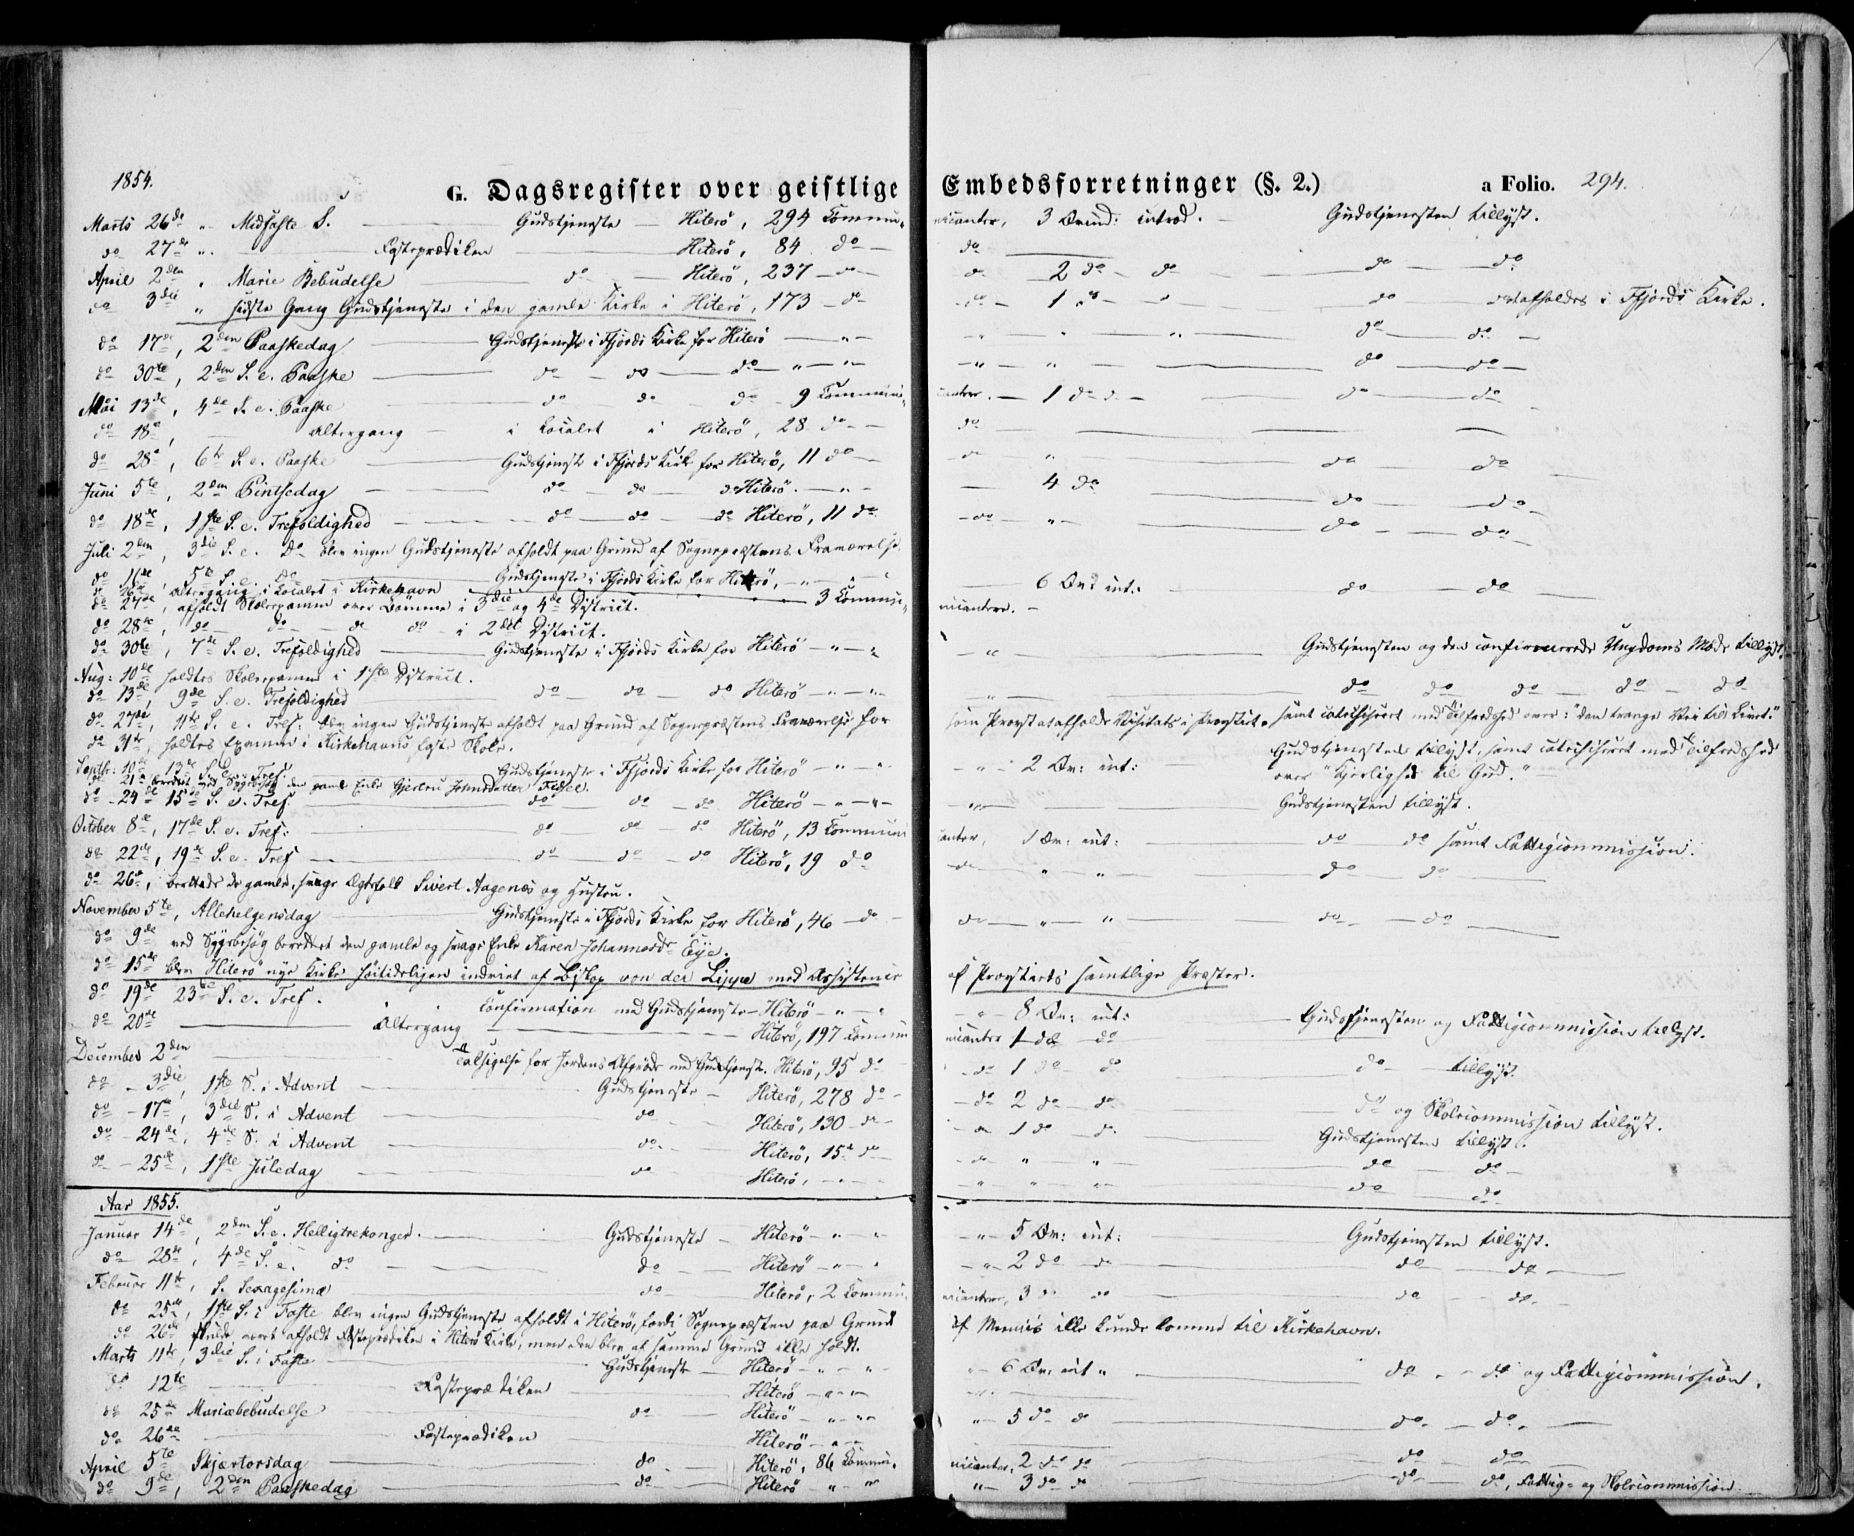 1854.
G. Dagsregister over geistlige Embedsforretninger (§. 2.) a Folio. 294.
Marts 26de „ Midfaste S. Gudstjeneste Hiterö, 294 Communicanter, 3 Qvind: introd. Gudstjenesten tillyst.
do 27de „ Fasteprædiken Hiterö, 84 do do
April 2den „ Mariæ Bebudelse do Hiterö, 237 do do 2 do do do do
do 3die „ sidste Gang Gudstjeneste i den gamle Kirke i Hiterö, 173 do do 1 do „ do at afholdes i Fjords Kirke.
do 17de, 2den Paaskedag Gudstjeneste i Fjords Kirke for Hiterö „ „ „ do do
do 30te, 2den S. e. Paaske do do do „ „ „ do do
Mai 13de, 4de S. e. Paaske do do do 9 Communicanter. 1 do do do do
do 18de, Altergang i Localet i Hiterö, 28 do do
do 28de, 6te S. e. Paaske Gudstjeneste i Fjords Kirke for Hiterö, 11 do do „ do do
Juni 5te, 2den Pintsedag do do do Hiterö. „ 4 do do do
do 18de, 1ste S. e. Trefoldighed do do do Hiterö, 11 do do „ do do
Juli 2den, 3die S. e. do blev ingen Gudstjeneste afholdt paa Grund af Sognepræstens Fraværelse.
do 16de, 5te S. e. do Gudstjeneste i Fjords Kirke for Hiterö, „ 6 Qvd int: do do
do Altergang i Localet i Kirkehavn 3 Communicantere.
do 27de, afholdt Skoleexamen over Börnene i 3die og 4de District.
do 28de, do do do do i 2det District.
do 30te, 7de S. e. Trefoldighed Gudstjeneste i Fjords Kirke for Hiterö „ „ Gudstjenesten og den confirmerede Ungdoms Möde tillyst.
Aug: 10de holdtes Skoleexamen i 1ste District.
do 13de, 9de S. e. Trefoldighed do do do Hiterö „ „ do do do do do
do 27de, 11te S. e. Tref: blev ingen Gudstjeneste afholdt paa Grund af Sognepræstens Fraværelse for som Provst at afholde Visitats i Provstiet. samt catechiseret med Tilfredshed over: "den trange Vei til Livet."
do 31te, holdtes Examen i Kirkehavns faste Skole.
Septbr: 10de, 13de S. e. Tref: Gudstjeneste i Fjords Kirke for Hiterö „ „ 2 Qv: int: Gudstjenesten tillyst, samt catechiseret med Tilfredshed over "Kjerlighed til Gud."
do 21de berettet ved Sygebesög den gamle Enke Gjertru Johnsdatter
do 24de 15de S. e. Tref. do do do Hiterö „ „ Gudstjenesten tillyst.
October 8de, 17de S. e. Tref: do do do Hiterö, 13 Communicanter, 1 Qv: int: do do samt Fattigcommission.
do 22de, 19de S. e. Tref do do do Hiterö, 19 do do „ „ do do
do 26de, berettede de gamle, svage Ægtefolk Sivert Aagenes og Hustru.
November 5te, Allehelgensdag Gudstjeneste i Fjords Kirke for Hiterö, 46 do do „ „ do do
do 9de ved Sygebesög berettet den gamle og svage Enke Karen Johannesdr Eye.
do 15de blev Hiterö nye Kirke höitideligen indviet af Biskop von der Lippe med Assistence af Provstiets samtlige Præster.
do 19de 23de S. e. Tref. Confirmation med Gudstjeneste Hiterö „ „ 8 Qv: int: Gudstjenesten og Fattigcommission tillyst.
do 20de Altergang Hiterö, 197 Communicanter 1 do do
December 2den Taksigelse for Jordens Afgröde med Gudstjeneste. Hiterö, 95 do do 1 do do do tillyst.
do 3die, 1ste S. i Advent Gudstjeneste Hiterö, 278 do do 2 do do do og Skolecommission tillyst.
do 17de, 3die S. i Advent do Hiterö, 130 do do 1 do do Gudstjenesten tillyst.
do 24de, 4de S. i Advent do Hiterö, 15 do do „ „ do do
do 25de, 1ste Juledag do Hiterö, „ „ „ „ do do
Aar 1855.
Januar 14de, 2den S. e. Helligtrekonger. Gudstjeneste Hiterö „ „ 5 Qv: int: Gudstjenesten tillyst.
do 28de, 4de S. e. do do Hiterö „ „ 2 do do do do
Februar 11te, S. Sexagesima do Hiterö, 2 Communicanter, 3 do do do do
do 25de, 1ste S. i Faste blev ingen Gudstjeneste afholdt i Hiterö, fordi Sognepræsten paa Grund af Menneis ikke kunde komme til Kirkehavn.
do 26de skulde været afholdt Fasteprædiken i Hiterö Kirke, men den blev af samme Grund ikke holdt.
Marts 11te, 3die S. i Faste Gudstjeneste Hiterö „ „ 6 Qv: int „ do do og Fattigcommission.
do 12te Fasteprædiken Hiterö „ „
do 25de Mariæbebudelse do Hiterö „ „ 5 do do do do
do 26de Fasteprædiken Hiterö „ „
April 5te Skjærtorsdag do Hiterö, 86 Communicanter, 2 do do do do
do 9de, 2den Paaskedag do Hiterö „ „ 3 do do do do, Fattig- og Skolecommission.